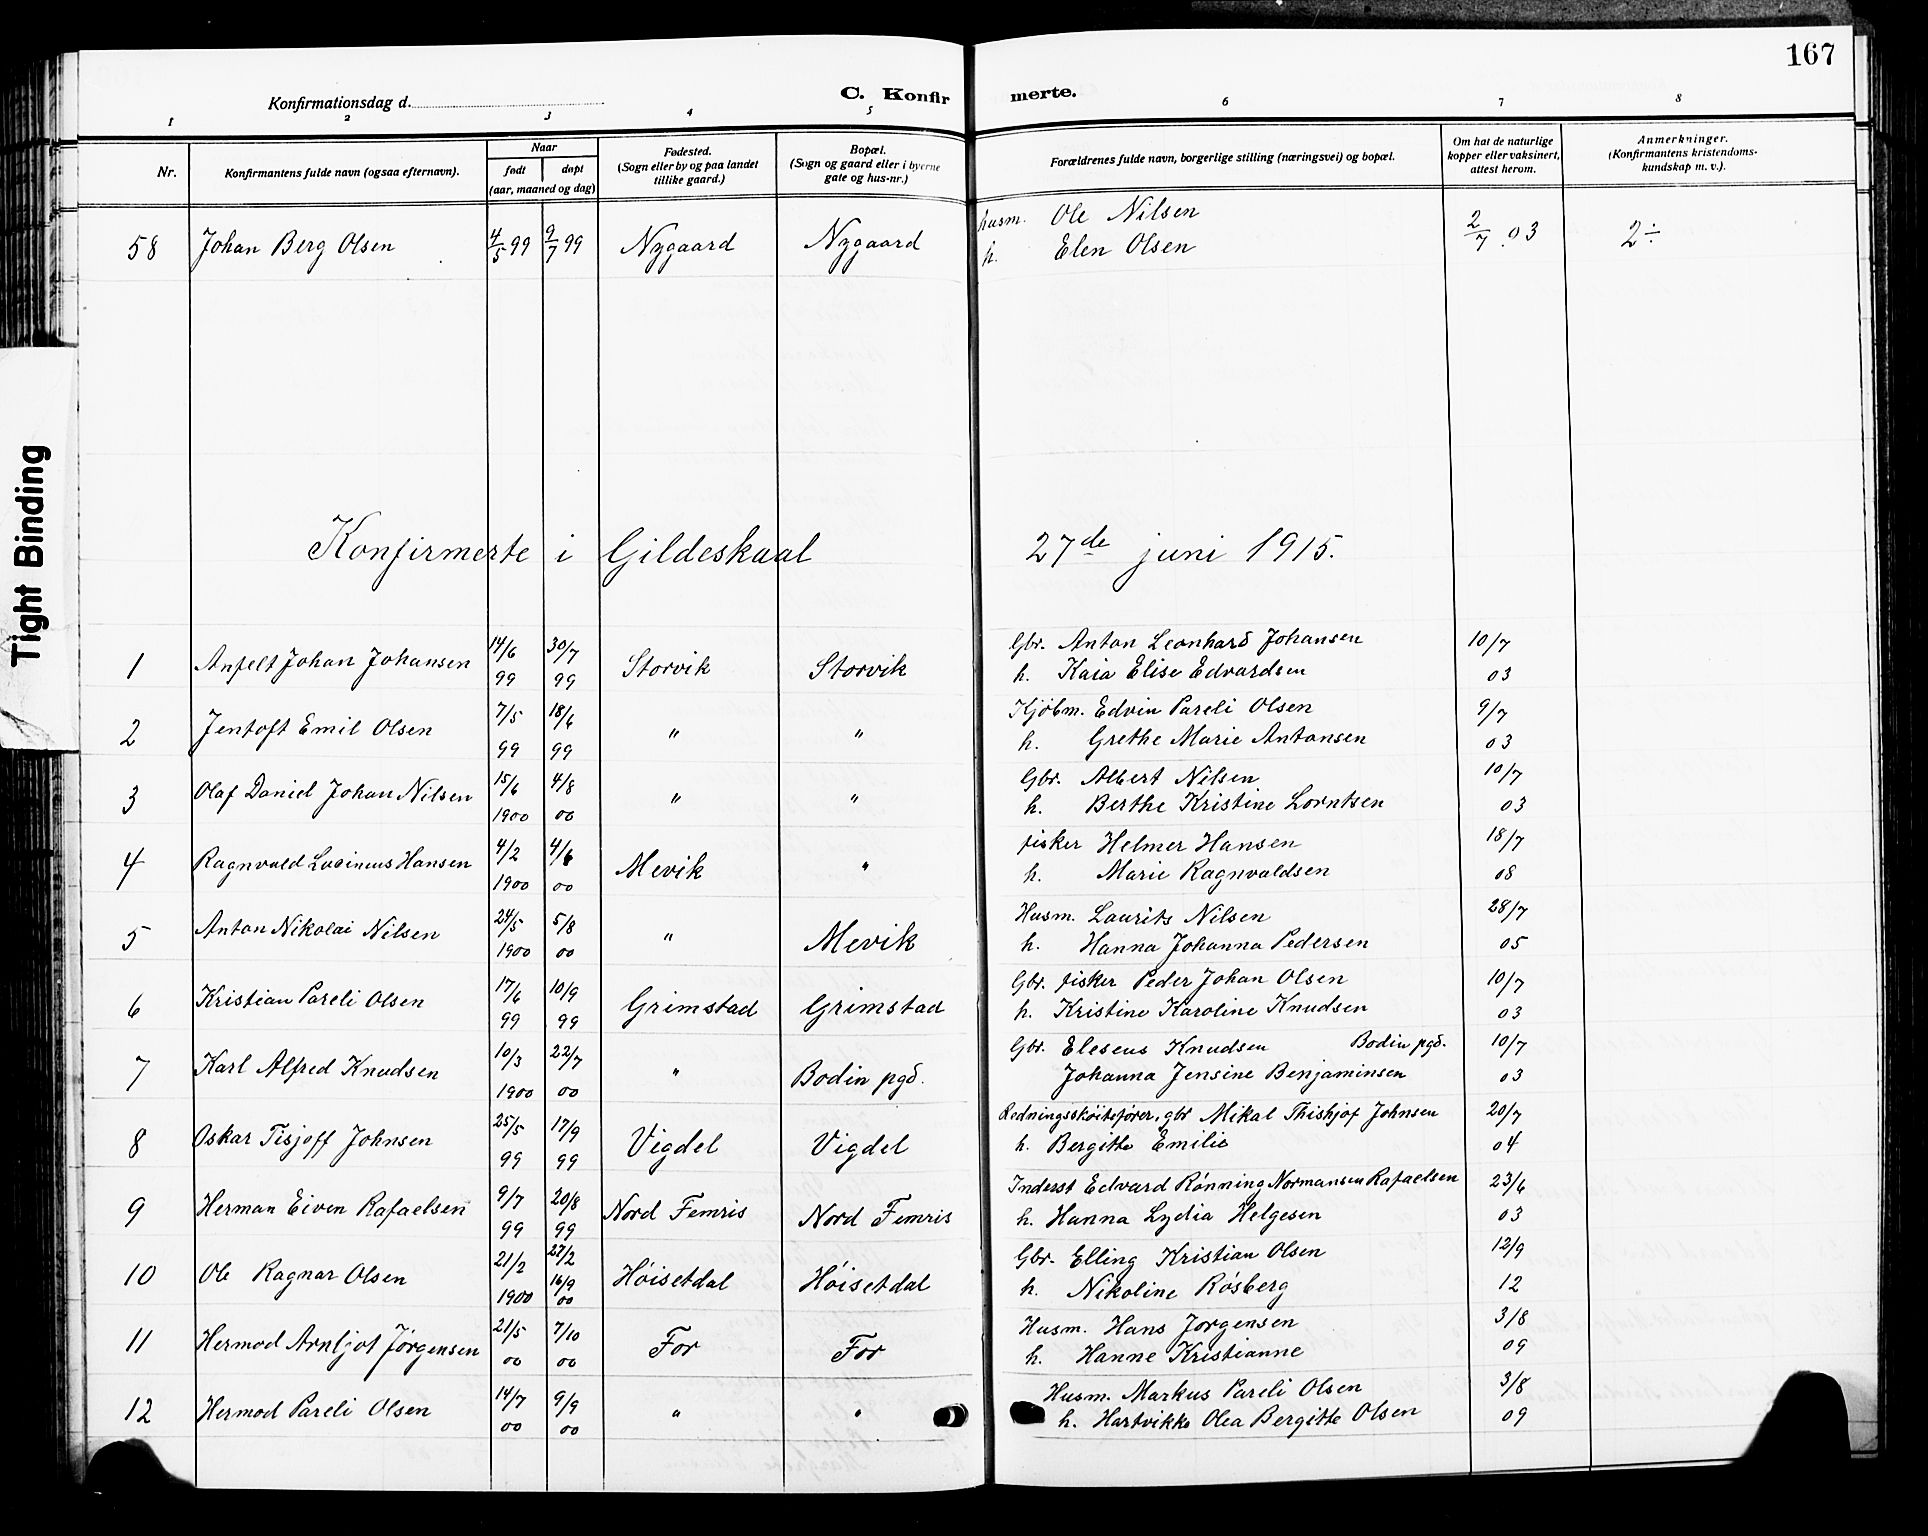 167
Konfirmationsdag d.
C. Konfirmerte.
1 2 3 4 5 6 7 8
Nr.
Konfirmantens fulde navn (ogsaa efternavn).
Naar
født døpt
(aar, maaned og dag)
Fødested.
(Sogn eller by og paa landet
tillike gaard.)
Bopæl.
(Sogn og gaard eller i byerne
gate og hus-nr.)
Forældrenes fulde navn, borgerlige stilling (næringsvei) og bopæl.
Om hat de naturlige
kopper eller vaksinert,
attest herom.
Anmerkninger.
(Konfirmantens kristendoms-
kundskap m. v.).
58 Johan Berg Olsen 4/5 99 9/7 99 Nygaard Nygaard husm. Ole Nilsen 2/7 03 2÷
h. Elen Olsen
Konfirmerte i Gildeskaal 27de juni 1915.
1 Anfelt Johan Johansen 14/6 30/7 Storvik Storvik Gbr. Anton Leonhard Johansen 10/7
99 99 h. Kaia Elise Edvardsen 03
2 Jentoft Emil Olsen 7/5 18/6 " " Kjöbm. Edvin Pareli Olsen 9/7
99 99 h. Grethe Marie Antonsen 03
3 Olaf Daniel Johan Nilsen 15/6 4/8 " " Gbr. Albert Nilsen 10/7
1900 00 h. Berthe Kristine Lorntsen 03
4 Ragnvald Lucineus Hansen 4/2 4/6 Mevik " fisker Helmer Hansen 18/7
1900 00 h. Marie Ragnvaldsen 08
5 Anton Nikolai Nilsen 24/5 5/8 " Mevik Husm. Laurits Nilsen 28/7
1900 00 h. Hanna Johanna Pedersen 05
6 Kristian Pareli Olsen 17/6 10/9 Grimstad Grimstad Gbr. fisker Peder Johan Olsen 10/7
99 99 h. Kristine Karoline Knudsen 03
7 Karl Alfred Knudsen 10/3 22/7 " Bodin pgd. Gbr. Eleseus Knudsen Bodin pgd. 10/7
1900 00 Johanna Jensine Benjaminsen 03
8 Oskar Tisjoff Johnsen 25/5 17/9 Vigdel Vigdel Redningsskøitefører, gbr Mikal Thishjof Johnsen 20/7
99 99 h. Bergitte Emilie 04
9 Herman Eiven Rafaelsen 9/7 20/8 Nord Femris Nord Femris Inderst Edvard Rønning Normansen Rafaelsen 23/6
99 99 h. Hanna Lydia Helgesen 03
10 Ole Ragnar Olsen 21/2 27/2 Høisetdal Høisetdal Gbr. Elling Kristian Olsen 12/9
1900 16/9 00 h. Nikoline Røsberg 12
11 Hermod Arntljot Jørgensen 21/5 7/10 For For Husm. Hans Jørgensen 3/8
00 00 h. Hanne Kristianne 09
12 Hermod Pareli Olsen 14/7 9/9 " " Husm. Markus Pareli Olsen 3/8
00 00 h. Hartvikke Olea Bergitte Olsen 09
Tight Binding